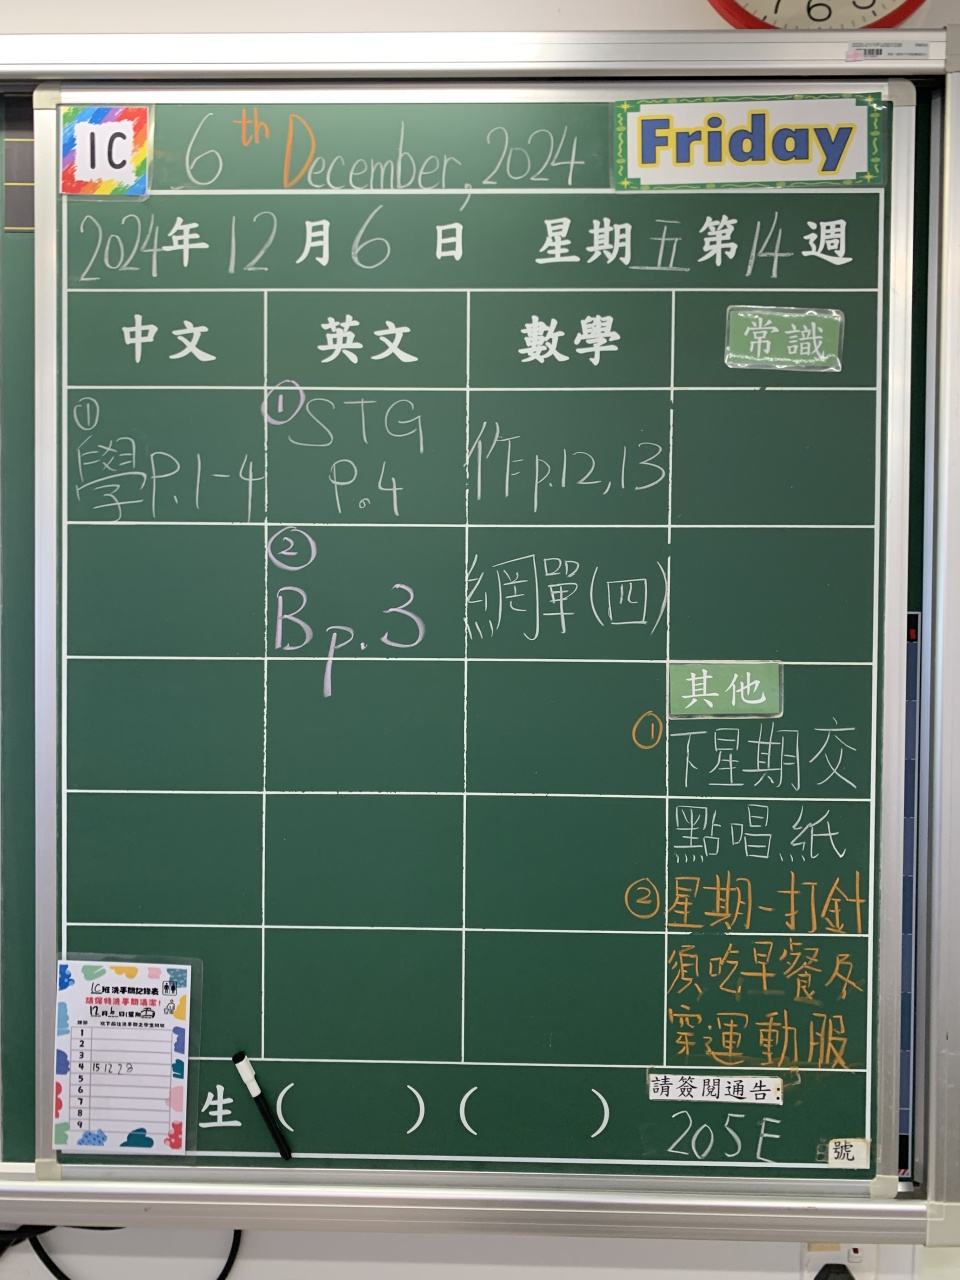 1C 6th December, 2024 Friday
2024年12月6日 星期五第14週
中文 英文 數學 常識
①
學P.1-4
① STG
P.4
②
B p.3
作p.12,13
網單(四)
其他
① 下星期交
點唱紙
② 星期一打針
須吃早餐及
穿運動服
請簽閱通告:
205E
號
生 ( ) ( )
1C班洗手間記錄表
請保持洗手間清潔!
1
2
3
4 15 12 2 8
5
6
7
8
9
7 6 5